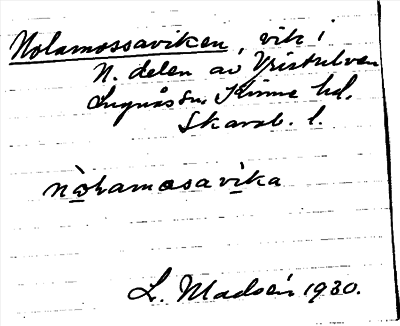 Nolamossaviken, vik i
N. delen av Vristulven
Lugnås sn, Kinne hd.
Skarab. l.
nωlamosavika
L. Madsén 1930.